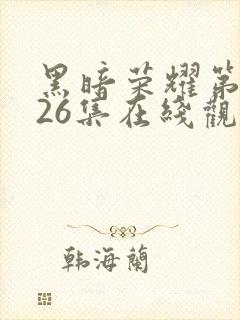 黑暗荣耀第
26集在线觀
韩海蘭